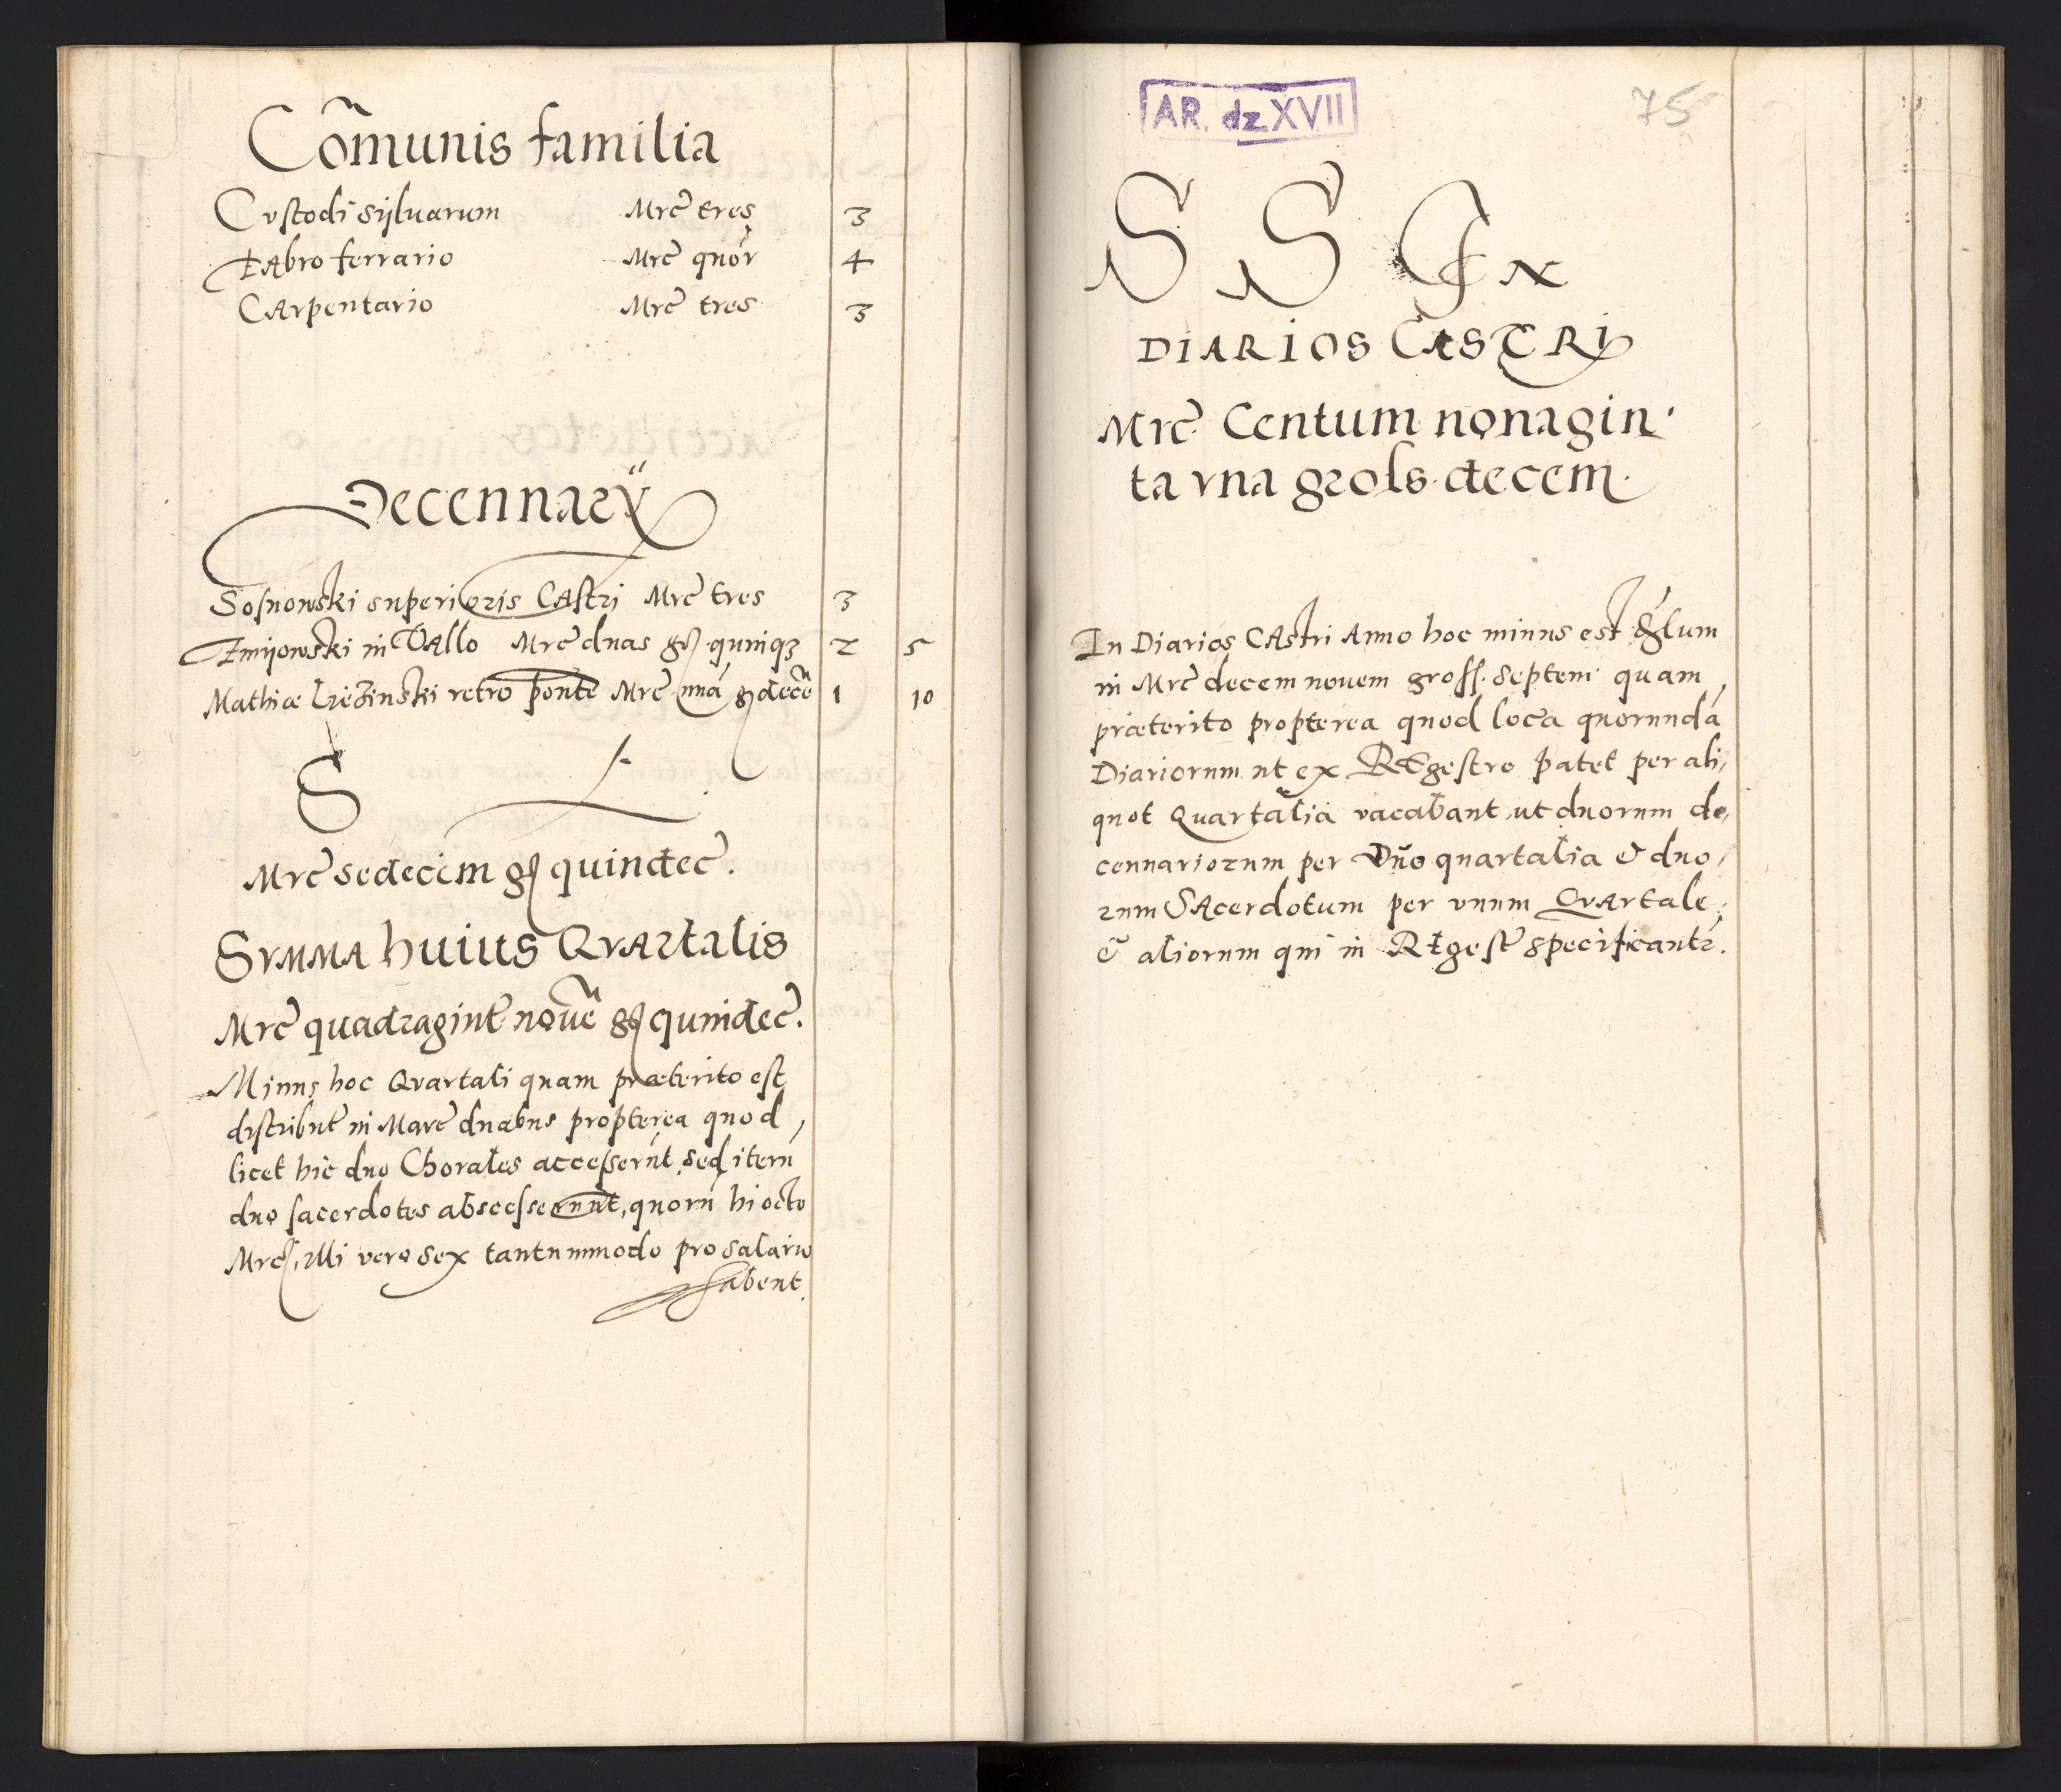 Cõmunis familia
Cvstodi sylvarum Mrc̃ tres 3
Fabro ferrario Mrc̃ quor 4
Carpentario Mrc̃ tres 3
Decennarÿ
Sosnowski superioris Castri Mrc̃ tres 3
Zmijowski in Vallo Mrc̃ duas gs quinq3 2 5
Mathiæ retro ponte Mrc̃ unã g decẽ 1 10
S
Mrc̃ sedecim gs quindec̃.
Svmma huius Qvartalis
Mrc̃ quadragint̃ novẽ gs quindec̃.
Minus hoc Qvartali quam præterito est
distribut̃ in Marc̃ duabus propterea quod,
licet hic duo Chorales accesserũt, sed iterũ
duo sacerdotes abscesserunt, quorũ hi octo
Mrc̃, illi vero sex tantummodo pro salario
habent.
AR. dz XVII
75
S S Ex
DIARIOS CASTRI
Mrc̃ Centum nonagin
ta vna gross decem.
In Diarios Castri Anno hoc minus est
in Mrc̃ decem novem gross. septem quam,
præterito propterea quod loca quorundã
Diariorum ut ex Regestro patet per ali,
quot Quartalia vacabant, ut duorum de,
cennariorum per Duo quartalia & duo,
rum Sacerdotum per vnum Qvartale,
& aliorum qui in Regest̃ specificantr.